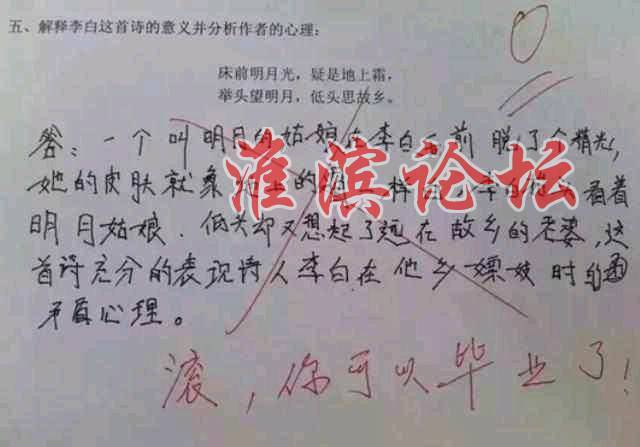 五、解释李白这首诗的意义并分析作者的心理：
0
床前明月光，疑是地上霜，
举头望明月，低头思故乡。
答：一个叫明月的姑娘在李白 前脱了个精光，
她的皮肤就象 上的 一样 李白 看着
明月姑娘．低头却又想起了远在故乡的老婆，这
首诗充分的表现诗人李白在他乡嫖妓时的
矛盾心理。
淮滨论坛
滚，你可以毕业了！